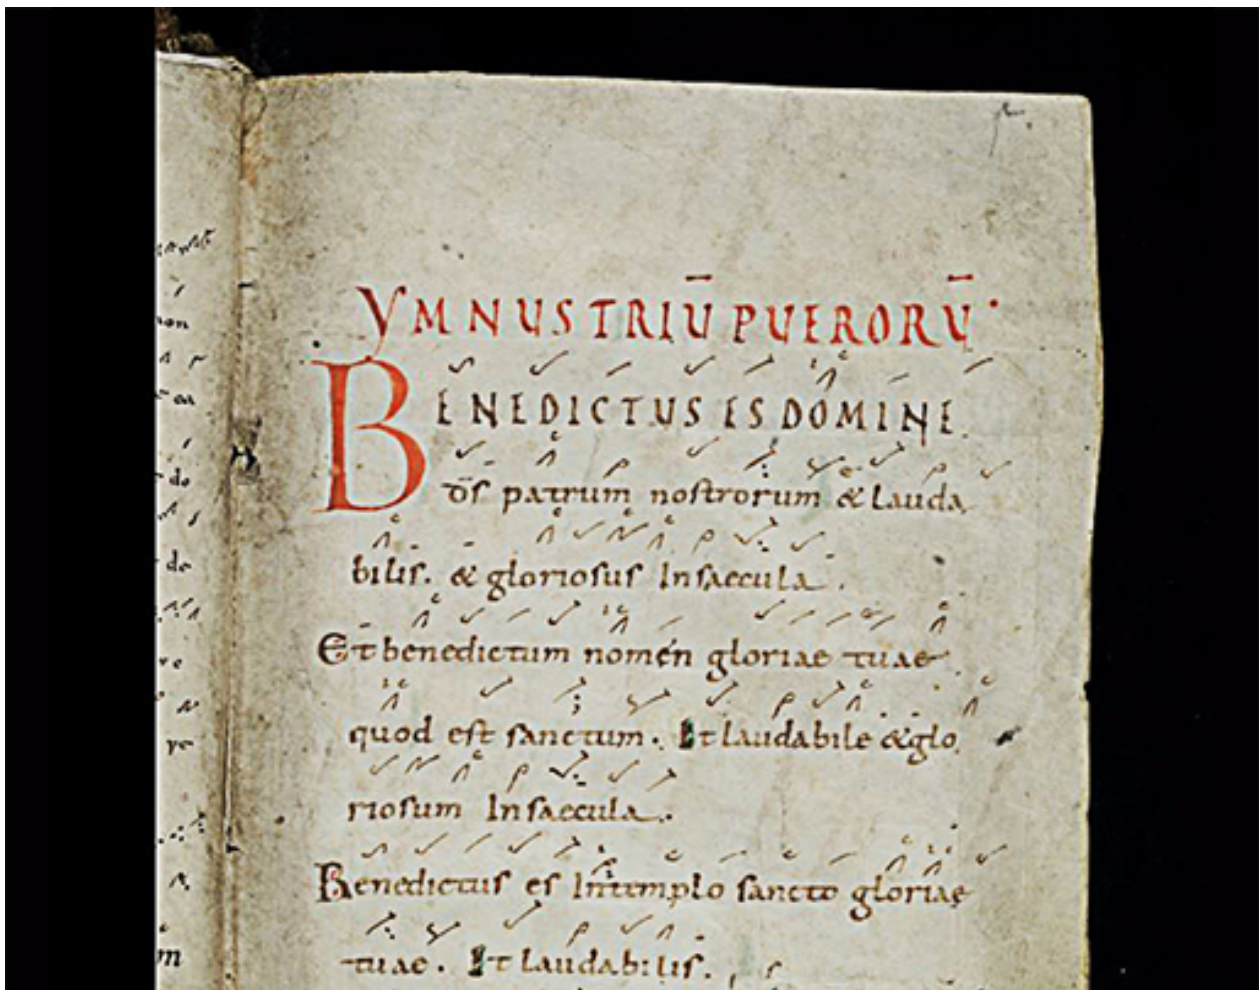 YMNUS TRIŪ PUERORŪ.
BENEDICTUS ES DOMINE.
dꝭ patrum nostrorum & lauda
bilis. & gloriosus In saecula.
Et benedictum nomen gloriae tuae
quod est sanctum. Et laudabile & glo
riosum In saecula.
Benedictus es In templo sancto gloriae
tuae. Et laudabilis.